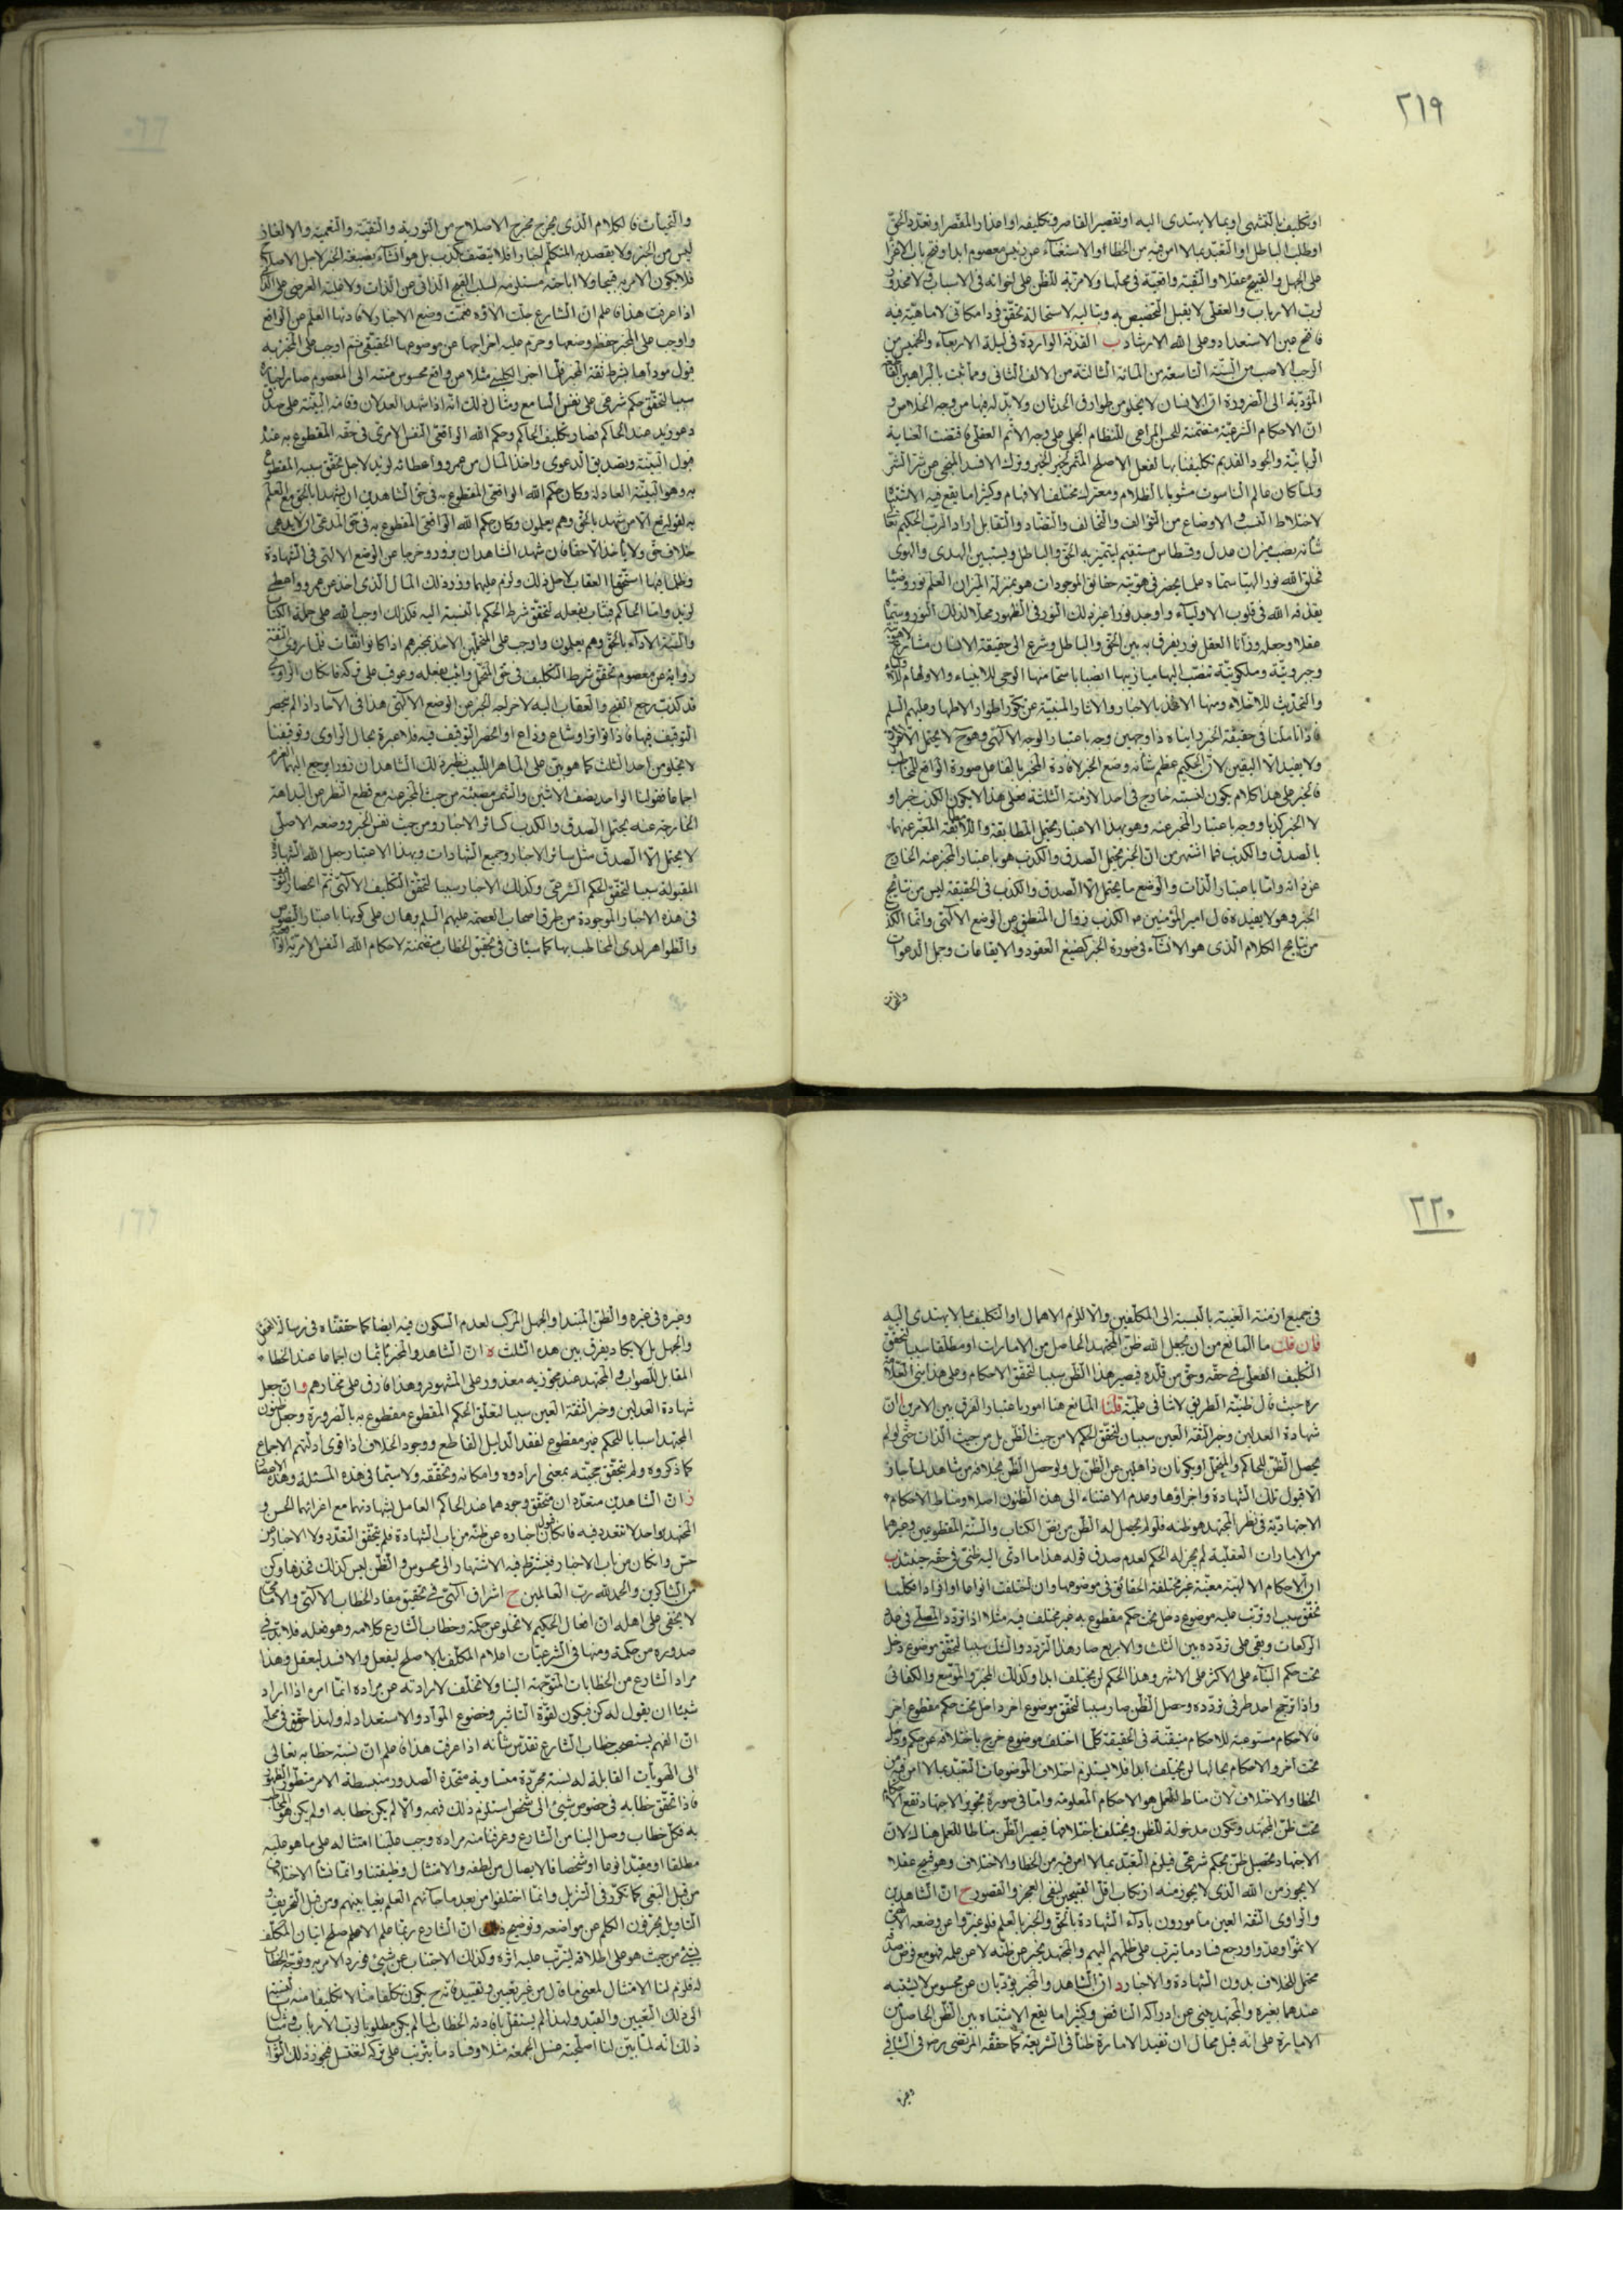 ٢١٩
او تكليفنا بالتشهى او بما لا يهتدى اليه او تقصير القاصر فى تكليفه او اعذار المقصر او تعدد الحق
او طلب الباطل او التعبد بما لا امن فيه من الخطاء او الاستغناء عن رئيس معصوم ابدا وفتح باب الاغراء
على الجهل والقبيح عقلا والتقية واقعية فى محلها ولا مزية للظن على اخواته فى الاسباب ولا محذوف
لرب الارباب والعقلى لا يقبل التخصيص
فافتح عين الاستعداد وعلى الله الارشاد ب القذفة الواردة فى ليلة الاربعاء والخميس من
الرجب الاصب من السنة التاسعة من المائة الثالثة من الالف الثانى ومما ثبت بالبراهين
المؤدية الى الضرورة ان الانسان لا يخلو من طوارق الحدثان ولا بد له فيها من وجه الخلاص و
ان الاحكام الشرعية متضمنة للحسن المراعى للنظام الجملى على وجه الاتم العقلى فاقتضت العناية
الربانية والجود القديم تكليفنا بها لفعل الاصلح المثمر لخير الخير وترك الافسد المنجى من شر الشر
ولما كان عالم الناسوت مشوبا بالظلام ومعترك مختلف الافهام وكثيرا ما يقع فيه الاشتباه
لاختلاط النسب والاوضاع من التوالف والتخالف والتضاد والتقابل اراد الرب الحكيم تعالى
شانه نصب ميزان عدل وقسطاس مستقيم ليتميز به الحق والباطل ويستبين الهدى والهوى
فخلق الله نورا الهيا سماه علما يحضر فى هويته حقائق الموجودات هو بمنزلة الميزان العلم نور وضياء
يقذفه الله فى قلوب الاولياء واوجد نورا غير ذلك النور فى الظهور محلا لذلك النور وسماه
عقلا وجعله وزانا العقل نور يفرق به بين الحق والباطل وشرع الى حقيقة الانسان مشارع
وجبروتية وملكوتية تنصب اليها ميازيبها انصبابا سما منها الوحى للانبياء والالهام
والتحديث للاخلاء ومنها الاخذ بالاخبار والاثار المنبئة عن تكور اطوار الاطهار عليهم السلم
فاذا تاملنا فى حقيقة الخبر راينا ه ذا وجهين وجه باعتبار الوجه الالهى وهو ح لا يحتمل الا
ولا يفيد الا اليقين لان الحكيم عظم شانه وضع الخبر لافادة المخبر بالفاعل صورة الواقع للمخاطب
فالخبر على هذا كلام يكون لنسبته خارج فى احد الازمنة الثلثة فعلى هذا لا يكون الكذب خبرا و
لا الخبر كذبا ووجه باعتبار المخبر عنه وهو بهذا الاعتبار محتمل المطابقة واللامطابقة المعبر عنهما
بالصدق والكذب فما اشتهر من ان الخبر محتمل الصدق والكذب هو باعتبار المخبر عنه الخارج
عن ذاته واما باعتبار الذات والوضع ما يحتمل الا الصدق والكذب فى الحقيقة ليس من نتايج
الخبر وهو لا يفيده قال امير المؤمنين ع الكذب زوال المنطق عن الوضع الالهى وانما الكذب
من نتايج الكلام الذى هو الانشاء فى صورة الخبر كصيغ العقود والايقاعات وجمل الدعوات
والتحيات فالكلام الذى يخرج مخرج الاصلاح من التورية والتقية والتعمية والالغاز
ليس من الخبر ولا يقصد به المتكلم اخبارا فلا يتصف بكذب بل هو انشاء بصيغة الخبر لاجل الاصلاح
فلا يكون الامر به قبيحا ولا اباحته مستلزمة لسلب القبح الذاتى عن الذات ولا غلبة العرضى على الذاتى
اذا عرفت هذا فاعلم ان الشارع جلت الاؤه وضع الاخبار لافادتها العلم عن الواقع
واوجب على المخبر حفظ وضعها وحرم عليه اخراجها عن موضوعها الحقيقى ثم اوجب على المخبر به
قبول مؤداها بشرط ثقة المخبر فلما اخبر الكلينى مثلا عن واقع محسوس منته الى المعصوم صار اخباره
سببا لتحقق حكم شرعى على نفس السامع ومثال ذلك انه اذا شهد العدلان وقامت البينة على صدق
دعوى زيد عند الحاكم فصار تكليف الحاكم وحكم الله الواقعى النفس الامرى فى حقه المقطوع به عنده
قبول البينة وتصديق الدعوى واخذ المال من عمرو واعطائه لزيد لاجل تحقق سببه المقطوع
به وهو البينة العادلة وكان حكم الله الواقعى المقطوع به فى حق الشاهدين ان يشهدا بالحق مع العلم
به لقوله تع الا من شهد بالحق وهم يعلمون وكان حكم الله الواقعى المقطوع به فى حق المدعى ان لا يدعى
خلاف حق ولا ياخذ الا حقا فان شهد الشاهدان بزور وخرجا عن الوضع الالهى فى الشهادة
وظلما فيها استحقا العقاب لاجل ذلك ولزم عليهما رد ذلك المال الذى اخذ من عمرو واعطى
لزيد واما الحاكم فيثاب بفعله لتحقق شرط الحكم بالنسبة اليه فكذلك اوجب الله على حملة الكتاب
والسنة الاداء بالحق وهم يعلمون واوجب على المتحملين الاخذ بخبرهم اذا كانوا ثقات فلما روى الثقة
رواية عن معصوم تحقق شرط التكليف فى حق المتحمل واثيب بفعله وعوقب على تركه فان كان الراوى
قد كذب يرجع القبح والعقاب اليه لاخراجه الخبر عن الوضع الالهى هذا فى الآحاد اذا لم ينحصر
التوقيف فيها فاذا تواتر او شاع وذاع او انحصر التوقيف فيه فلا عبرة بحال الراوى وتوقيفنا
لا يخلو من احد الثلث كما هو بين على الماهر اللبيب نظيره لك الشاهدان زورا يرجع اليهما الغرم
اجماعا فقولنا الواحد نصف الاثنين والشمس مضيئة من حيث المخبر عنه مع قطع النظر عن البداهة
الخارجة عنه يحتمل الصدق والكذب كسائر الاخبار ومن حيث نفس الخبر ووضعه الاصلى
لا يحتمل الا الصدق مثل سائر الاخبار وجميع الشهادات وبهذا الاعتبار جعل الله الشهادة
المقبولة سببا لتحقق الحكم الشرعى وكذلك الاخبار سببا لتحقق التكليف الالهى ثم انحصار
فى هذه الاخبار الموجودة من طرق اصحاب العصمة عليهم السلم برهان على كونها باعتبار النصوص
والظواهر لدى المخاطب بها كما سياتى فى تحقيق الخطاب متضمنة لاحكام الله النفس الامرية
٢٢٠
فى جميع ازمنة الغيبة بالنسبة الى المكلفين والا للزم الاهمال او التكليف بما لا يهتدى اليه
فان قلت ما المانع من ان يجعل الله ظن المجتهد الحاصل من الامارات او مطلقا سببا لتحقق
التكليف الفعلى فى حقه وحق من قلده فيصير هذا الظن سببا لتحقق الاحكام وعلى هذا بنى العلامة
ره حيث قال ظنية الطريق لا تنافى علمية قلنا المانع هنا امور باعتبار الفرق بين الامرين ا ان
شهادة العدلين وخبر الثقة العين سببان لتحقق الحكم لا من حيث الظن بل من حيث الذات حتى لو لم
يحصل الظن للحاكم والمتحمل او يكونان ذاهلين عن الظن بل ولو حصل الظن بخلافه من شاهد
الا قبول تلك الشهادة واجراؤها وعدم الاعتناء الى هذه الظنون اصلا ومناط الاحكام
الاجتهادية فى نظر المجتهد هو ظنه فلو لم يحصل له الظن من نص الكتاب والسنة المقطوعين وغيرها
من الامارات العقلية لم يجز له الحكم لعدم صدق قوله هذا ما ادى اليه ظنى فى حقه حينئذ ب
ان الاحكام الالهية معينة غير مختلفة الحقائق فى موضوعها وان اختلفت انواعا وافرادا فكلما
تحقق سبب او ترتب عليه موضوع دخل تحت حكم مقطوع به غير مختلف فيه مثلا اذا تردد المصلى فى عدد
الركعات وبقى على تردده بين الثلث والاربع صار هذا التردد والشك سببا لتحقق موضوع دخل
تحت حكم البناء على الاكثر على الاشهر وهذا الحكم لن يختلف ابدا وكذلك المخير والموسع والكفائى
واذا ترجح احد طرفى تردده وحصل الظن صار سببا لتحقق موضوع اخر داخل تحت حكم مقطوع اخر
فالاحكام مستوعبة للاحكام متيقنة فى الحقيقة كلما اختلف موضوع خرج باختلافه عن حكم ودخل
تحت آخر والاحكام بحالها لن يختلف ابدا فلا يستلزم اختلاف الموضوعات التعبد بما لا امن فيه من
الخطا والاختلاف لان مناط العمل هو الاحكام المعلومة واما فى صورة تجويز الاجتهاد تقع الاحكام
تحت ظن المجتهد وتكون مدخولة للظن ويختلف باختلافها فيصير الظن مناطا للعمل هنالك لان
الاجتهاد تحصيل ظن بحكم شرعى فيلزم التعبد بما لا امن فيه من الخطا والاختلاف وهو قبيح عقلا
لا يجوز من الله الذى لا يجوز منه ارتكاب اقل القبيحين لنفى العجز والقصور ج ان الشاهدين
والراوى الثقة العين مامورون باداء الشهادة بالحق والخبر بالعلم فلو غيروا عن وضعه الالهى
لاثموا وعدوا ورجع فساد ما ترتب على ظلمهم اليهم والمجتهد يخبر عن ظنه لا عن علمه فهو مع فرض صدقه
محتمل للخلاف بدون الشهادة والاخبار د ان الشاهد والمخبر يؤديان عن محسوس لا يشتبه
عندهما بغيره والمجتهد ينبئ عن ادراكه الناقص وكثيرا ما يقع الاشتباه بين الظن الحاصل من
الامارة على انه قيل محال ان تفيد الامارة ظنا فى الشريعة كما حققه المرتضى رض فى الشافى
وغيره
وغيره فى غيره والظن المبتدا والجهل المركب لعدم السكون فيه ايضا كما حققناه فى رسالة
والجهل بل لا يكاد يفرق بين هذه الثلث ه ان الشاهد والمخبر ياثمان اجماعا عند الخطاء
المقابل للصواب والمجتهد عند مجوزيه معذور على المشهور وهذا فارق على مختارهم و ان جعل
شهادة العدلين وخبر الثقة العين سببا لتعلق الحكم المقطوع مقطوع به بالضرورة وجعل ظنون
المجتهد اسبابا للحكم غير مقطوع لفقد الدليل القاطع ووجود الخلاف اذ اقوى ادلتهم الاجماع
كما ذكروه ولم يتحقق حجيته بمعنى ارادوه وامكانه وتحققه ولا سيما فى هذه المسئلة وهذه الاعصار
ز ان الشاهدين متعدد ان يتحقق وجودهما عند الحاكم العامل بشهادتهما مع اخبارهما الحسن و
المجتهد واحد لا تعدد فيه فان كان قبول اخباره عن ظنه من باب الشهادة فلم يتحقق التعدد ولا الاخبار من
حس وان كان من باب الاخبار فيشترط فيه الاشتهار الى محسوس والظن ليس كذلك فخذها وكن
من الشاكرين والحمد لله رب العالمين ح اشراق الهى فى تحقيق مفاد الخطاب الالهى والامامى
لا يخفى على اهله ان افعال الحكيم لا تخلو عن حكمة وخطاب الشارع كلامه وهو فعله فلا بد فى
صدوره من حكمة ومنها فى الشرعيات اعلام المكلف بالاصلح ليفعل والافسد ليعقل وهذا
مراد الشارع من الخطابات المتوجهة الينا ولا تخلف لارادته عن مراده انما امره اذا اراد
شيئا ان يقول له كن فيكون لقوة التاثير وخضوع المواد والاستعداد له ولهذا حقق فى محله
ان الفهم يستصحب خطاب الشارع تقدس شانه اذا عرفت هذا فاعلم ان نسبة خطابه تعالى
الى الهويات القابلة له نسبة مجردة متساوية متحدة الصدور منبسطة الامر
فاذا تحقق خطابه فى خصوص شيئ الى شخص استلزم ذلك فهمه والا لم يكن خطابه او لم يكن هو المخاطب
به فكل خطاب وصل الينا من الشارع وعرفنا منه مراده وجب علينا امتثاله على ما هو عليه
مطلقا او مقيدا نوعا او شخصا فالايصال من لطفه والامتثال وظيفتنا وانما نشا الاختلاف
من قبل البغى كما تكرر فى التنزيل وانما اختلفوا من بعد ما جائهم العلم بغيا بينهم ومن قبل التحريف و
التاويل يحرفون الكلم عن مواضعه وتوضيح ذلك ان الشارع ربما علم الاعلم صلح اتيان المكلف
بشئ من حيث هو على اطلاقه ليترتب عليه اثره وكذلك الاجتناب عن شيئ فورد الامر به وتوجه الخطاب
له فلزم لنا الامتثال لمعنى ما قال من غير تعيين وتقييد فانه ح يكون تكلفا منا لا تكليفا منه
الى ذلك التعيين والقيد ولهذا لم يستقل بافادته الخطاب لما لم يكن مطلوبا لرب الارباب ومثال
ذلك انه لما تبين لنا اصلحية غسل الجمعة مثلا وفساد ما يترتب على تركه لنغتسل فنحوز ذلك الثواب